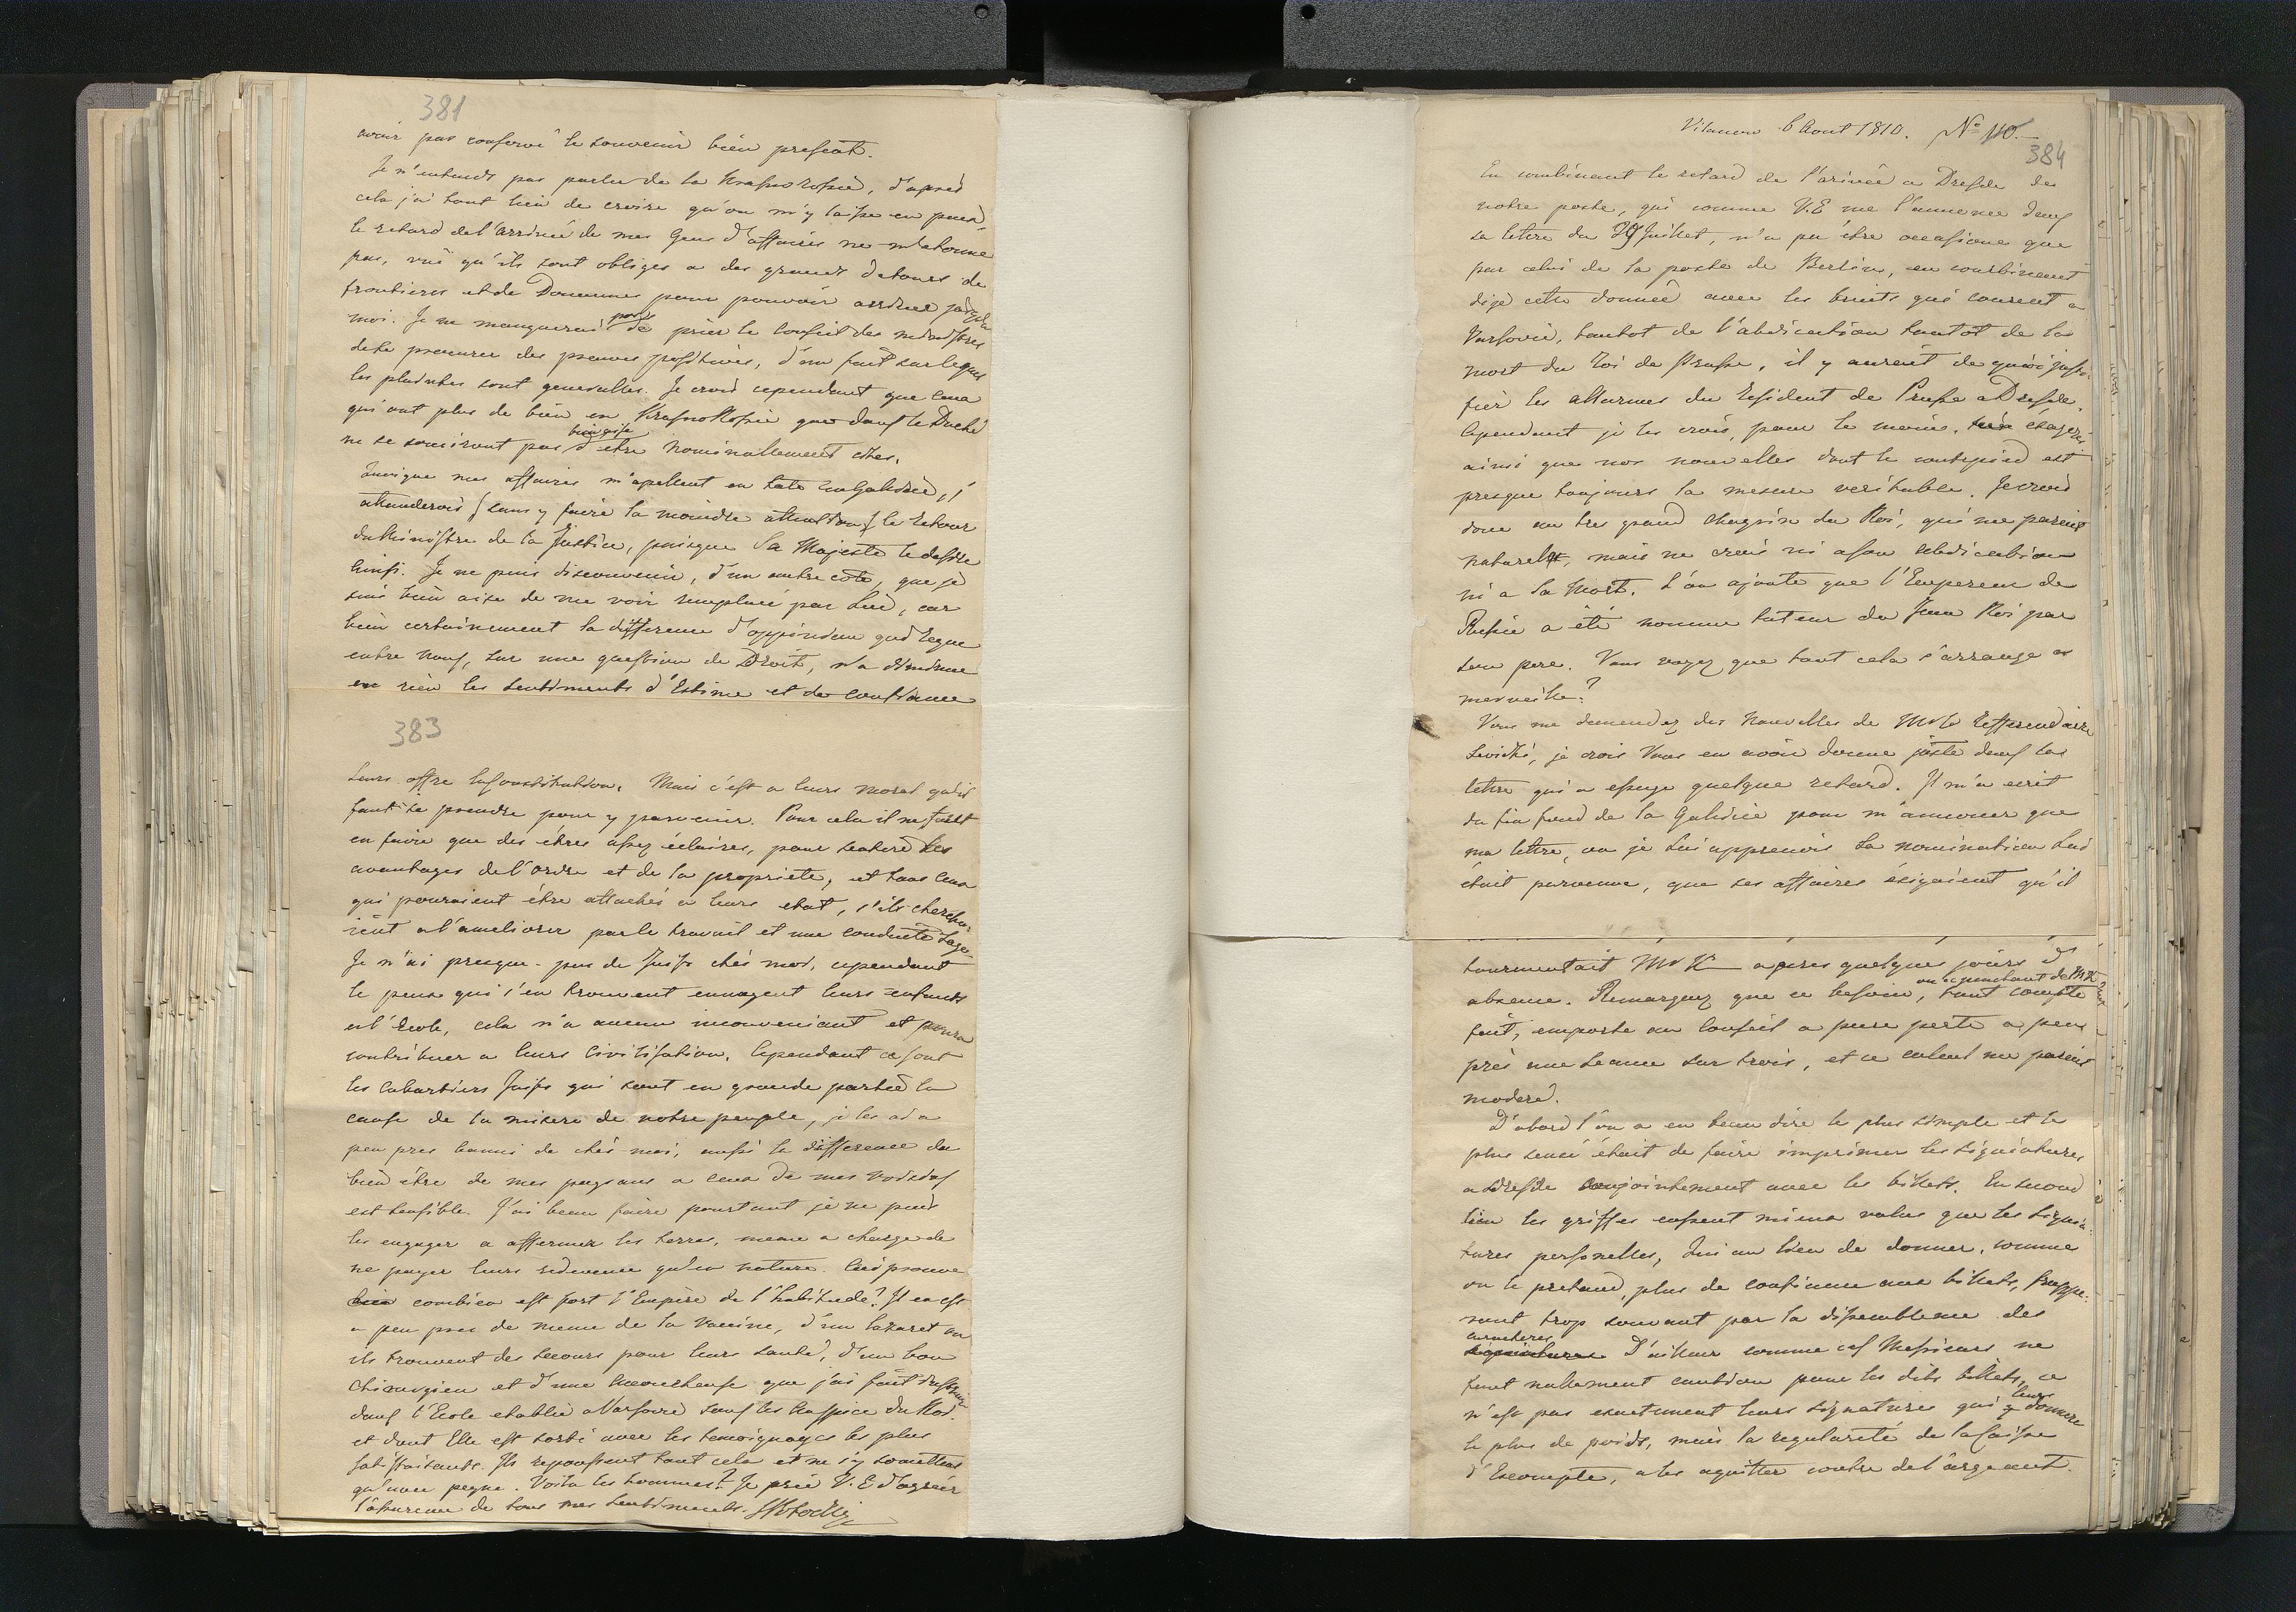 381
avoir pas conservé le souvenir bien present.
Je n'entends pas parler de la Krasno Rossie, d'après
cela j'ai tout lieu de croire qu'on m'y laisse en paix,
le retard de l'arrivée de mes Gens d'affaires ne m'etonne
pas, vuë qu'ils sont obligés a des grands detours de
frontieres et de Douannes pour pouvoir arriver jusqu'a
moi. Je ne manquerai pas de prier le Conseil des ministres
de se procurer des preuves positives, d'un fait sur lequel
les plaintes sont generalles. Je crois cependant que ceux
qui ont plus de bien en Krasno Rossie que dans le Duché
ne se souciront pas bien aise d'etre nominallement cités.
Quoique mes affaires m'apellent en toute en Galicie, j'
attenderois (sans y faire la moindre attention) le Retour
du Ministre de la Justice, puisque Sa Majesté le desire
Ainsi. Je ne puis disconvenir, d'un autre coté, que je
suis bien aise de me voir remplacé par Lui, car
bien certainement la difference d'oppinion qui regne
entre nous, sur une question de Droit, n'a diminué
en rien les sentiments d'Estime et de confiance
383
Leurs offre la Constitution. Mais c'est a leurs moral qu'il
faut se prendre pour y parvenir. Pour cela il ne faut
en faire que des êtres assez éclairés, pour sentire les
avantages de l'ordre et de la proprieté, et tous ceux
qui pouraient être attachés a leurs etat, s'ils cherchai-
ient a l'ameliorer par le travail et une conduite sage.
Je n'ai presque pas de Juifs chés moi, cependant
le peux qui s'en trouvent envoyent leurs enfants
a l'Ecole, cela n'a aucun inconveniant et poura
contribuer a leurs Civilisation. Cependant ce sont
les Cabartiers Juifs qui sont en grande partie la
cause de la misere de notre peuple, je les ai a
peu pres banni de chés moi, aussi la difference du
bien être de mes paysans a ceux de mes voisins
est sensible. J'ai beau faire pourtant je ne puis
les engager a affermer les terres, meme a charge de
ne payer leurs redevence qu'en nature. Ceci prouve
combien est fort l'Empire de l'habitude? Il en est
a peu pres de meme de la Vaccine, d'un Lazaret ou
ils trouvent des secours pour leurs santé, d'un bon
Chirurgien et d'une Accoucheuse que j'ai fait instruire
dans l'Ecole etablie a Varsovie sous les Auspices du Roi.
et dont Elle est sortie avec les temoignages les plus
satisfaisants. Ils repoussent tout cela et ne s'y soumettent
qu'avec peyne. Voila les hommes? Je prie V. E d'agréer
l'assurence de tous mes Sentiments. SPotocki
Vilanow 6 Aout 1810. N° 110.
384
En combinant le retard de l'arivée a Dresde de
notre poste, qui comme V.E me l'annonce dans
sa lettre du 29 Juillet, n'a pu être occasioné que
par celui de la poste de Berlin, en combinant
disje cette donnée avec les bruits qui courent a
Varsovie, tantot de l'abdication tantôt de la
mort du Roi de Prusse, il y auroit de quoi justi-
fier les allarmes du Resident de Prusse a Dresde.
Cependant je les crois, pour le moins, exagerés
ainsi que nos nouvelles dont le contrepied est
presque toujours la mesure veritable. Je crois
donc au tres grand chagrin du Roi, qui me parait
naturel, mais ne crois ni a son abdication
ni a sa Mort. L'on ajoute que l'Empereur de
Russie a été nommé tuteur du Jeune Roi par
son pere. Vous voyez que tout cela s'arrange a
merveille?
Vous me demendez des Nouvelles de Mr le Refferendaire
Lewicki, je crois Vous en avoir donné juste dans la
lettre qui a essuyé quelque retard. Il m'a ecrit
du fin fond de la Galicie pour m'annoncer que
ma lettre, ou je lui apprenois sa nomination lui
était parvenue, que ses affaires exigaient qu'il
tourmentait Mr K apres quelques jours d'
absence. Remarquez que ce besoin, ou ce penchant de Mr K tout compte
fait, emporte au Conseil a pure perte a peu
près une seance sur trois, et ce calcul me parait
moderé.
D'abord l'on a eu beau dire le plus simple et le
plus sensé était de faire imprimer les signatures
a Dresde conjointement avec les billets. En second
lieu les griffes eussent mieux valus que les signa-
tures personelles, qui au lieu de donner, comme
on le pretend, plus de confience aux billets, frappe-
ront trop souvent par la dissemblance des
caracteres. D'ailleur comme ces Messieurs ne
sont nullement caution pour les dits billets, ce
n'est pas exactement leurs signatures qui leurs donnera
le plus de poids, mais la regularité de la Caisse
d'Escompte, a les aquitter contre de l'argeant.